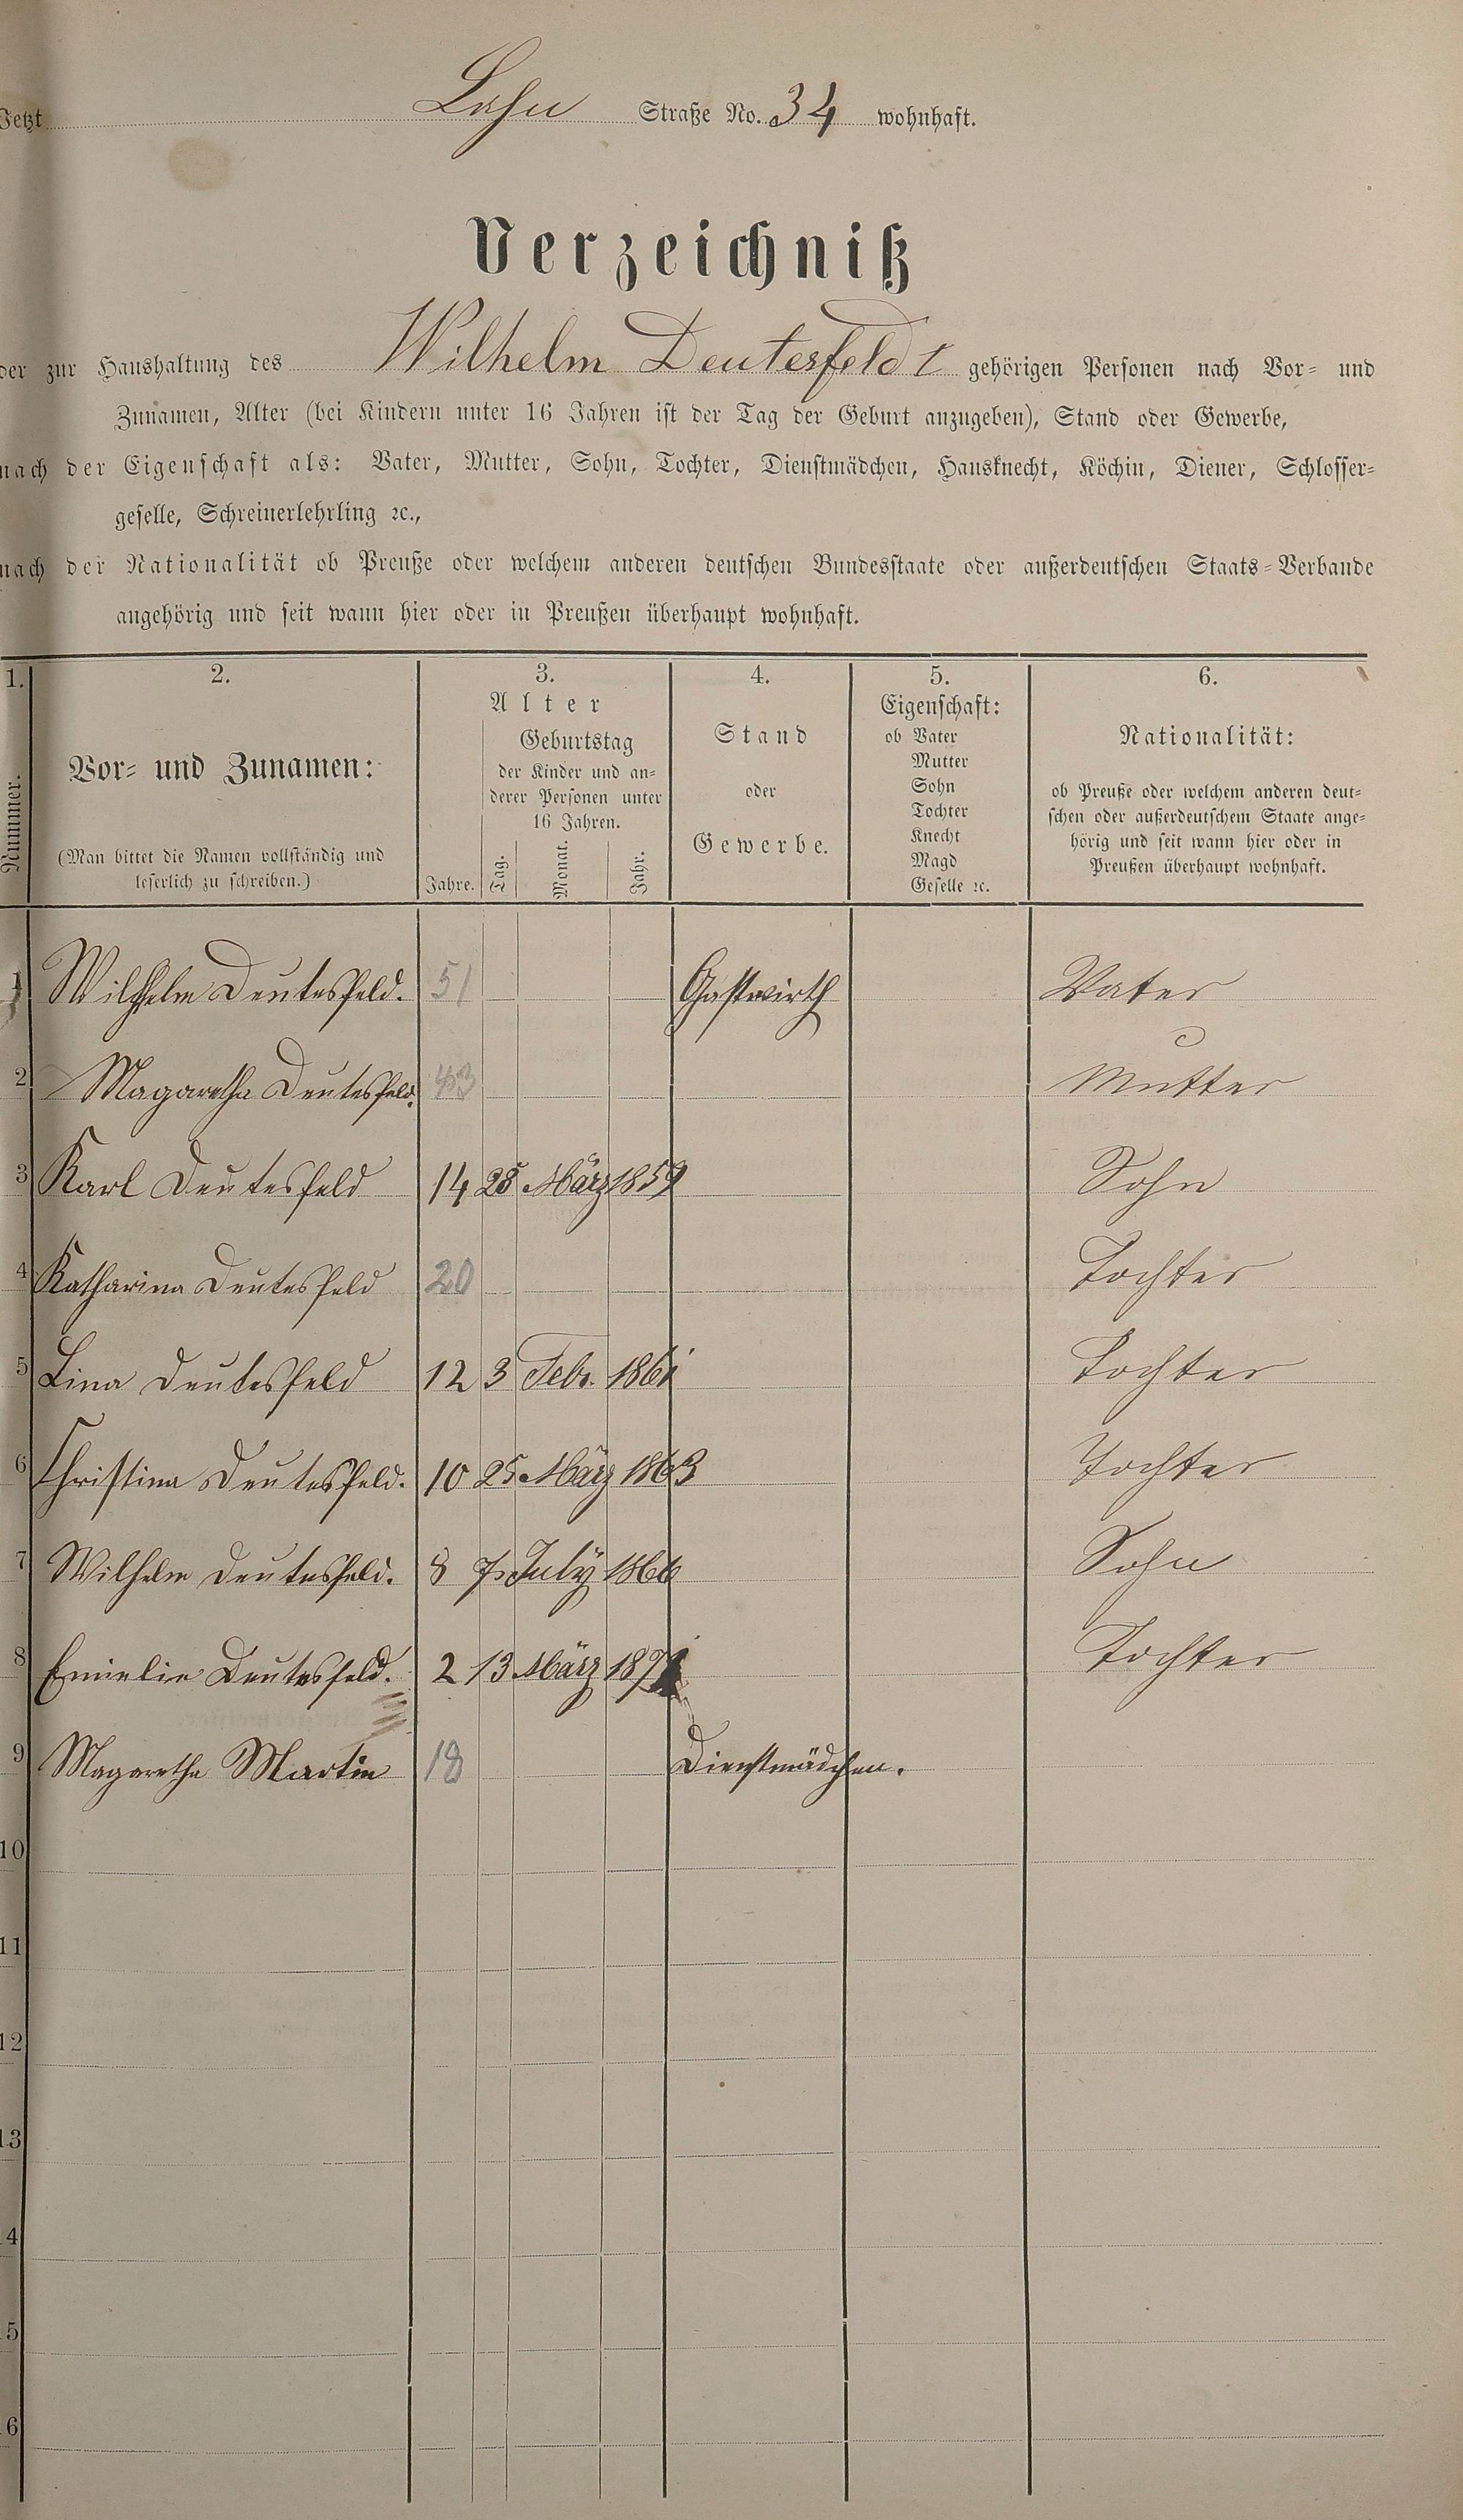 Jetzt Lahn Straße No. 34 wohnhaft.
Verzeichniß
der zur Haushaltung des Wilhelm Deutesfeld I gehörigen Personen nach Vor- und
Zunamen, Alter (bei Kindern unter 16 Jahren ist der Tag der Geburt anzugeben), Stand oder Gewerbe,
nach der Eigenschaft als: Vater, Mutter, Sohn, Tochter, Dienstmädchen, Hausknecht, Köchin, Diener, Schlosser-
geselle, Schreinerlehrling ꝛc.,
nach der Nationalität ob Preuße oder welchem anderen deutschen Bundesstaate oder außerdeutschen Staats-Verbande
angehörig und seit wann hier oder in Preußen überhaupt wohnhaft.
1.
Nummer.
2.
Vor- und Zunamen:
(Man bittet die Namen vollständig und
leserlich zu schreiben.)
3.
Alter
Geburtstag
der Kinder und an-
derer Personen unter
16 Jahren.
Jahre. Tag. Monat. Jahr.
4.
Stand
oder
Gewerbe.
5.
Eigenschaft:
ob Vater
Mutter
Sohn
Tochter
Knecht
Magd
Geselle ꝛc.
6.
Nationalität:
ob Preuße oder welchem anderen deut-
schen oder außerdeutschem Staate ange-
hörig und seit wann hier oder in
Preußen überhaupt wohnhaft.
1 Wilhelm Deutesfeld. 51 Gastwirth Vater
2 Magaretha Deutesfeld. 43 Mutter
3 Karl Deutesfeld 14 28 März 1859 Sohn
4 Katharina Deutesfeld 20 Tochter
5 Lina Deutesfeld 12 3 Febr. 1861 Tochter
6 Christina Deutesfeld. 10 25 März 1863 Tochter
7 Wilhelm Deutesfeld. 8 7. July 1866 Sohn
8 Emielie Deutesfeld. 2 13 März 1871 Tochter
9 Magarethe Martin 18 Dienstmädchen.
10
11
12
13
4
5
6